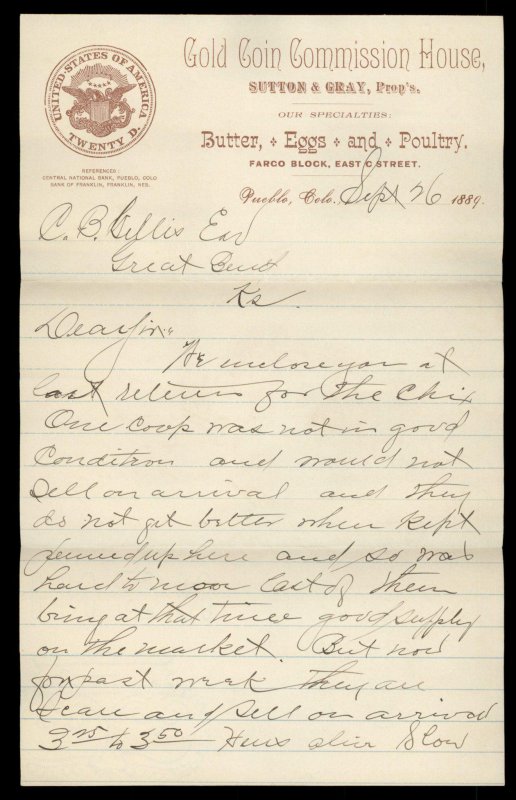 UNITED STATES OF AMERICA
TWENTY D.
REFERENCES:
CENTRAL NATIONAL BANK, PUEBLO, COLO
BANK OF FRANKLIN, FRANKLIN, NEB.
Gold Coin Commission House,
SUTTON & GRAY, Prop's.
OUR SPECIALTIES:
Butter, Eggs and Poultry.
FARGO BLOCK, EAST C STREET.
Pueblo, Colo. Sept 26 1889.
C. B. Gillis Esq
Great Bend
Ks.
Dear Sir:
We inclose you at
last returns for the Chix
One Coop was not in good
Condition and would not
Sell on arrival and they
do not get better when Kept
penned up here and so was
hard to move last of them
being at that time good supply
on the market. But now
for past week they are
Scarce and sell on arrival
3.25 to 3.50 Hens alive Slow